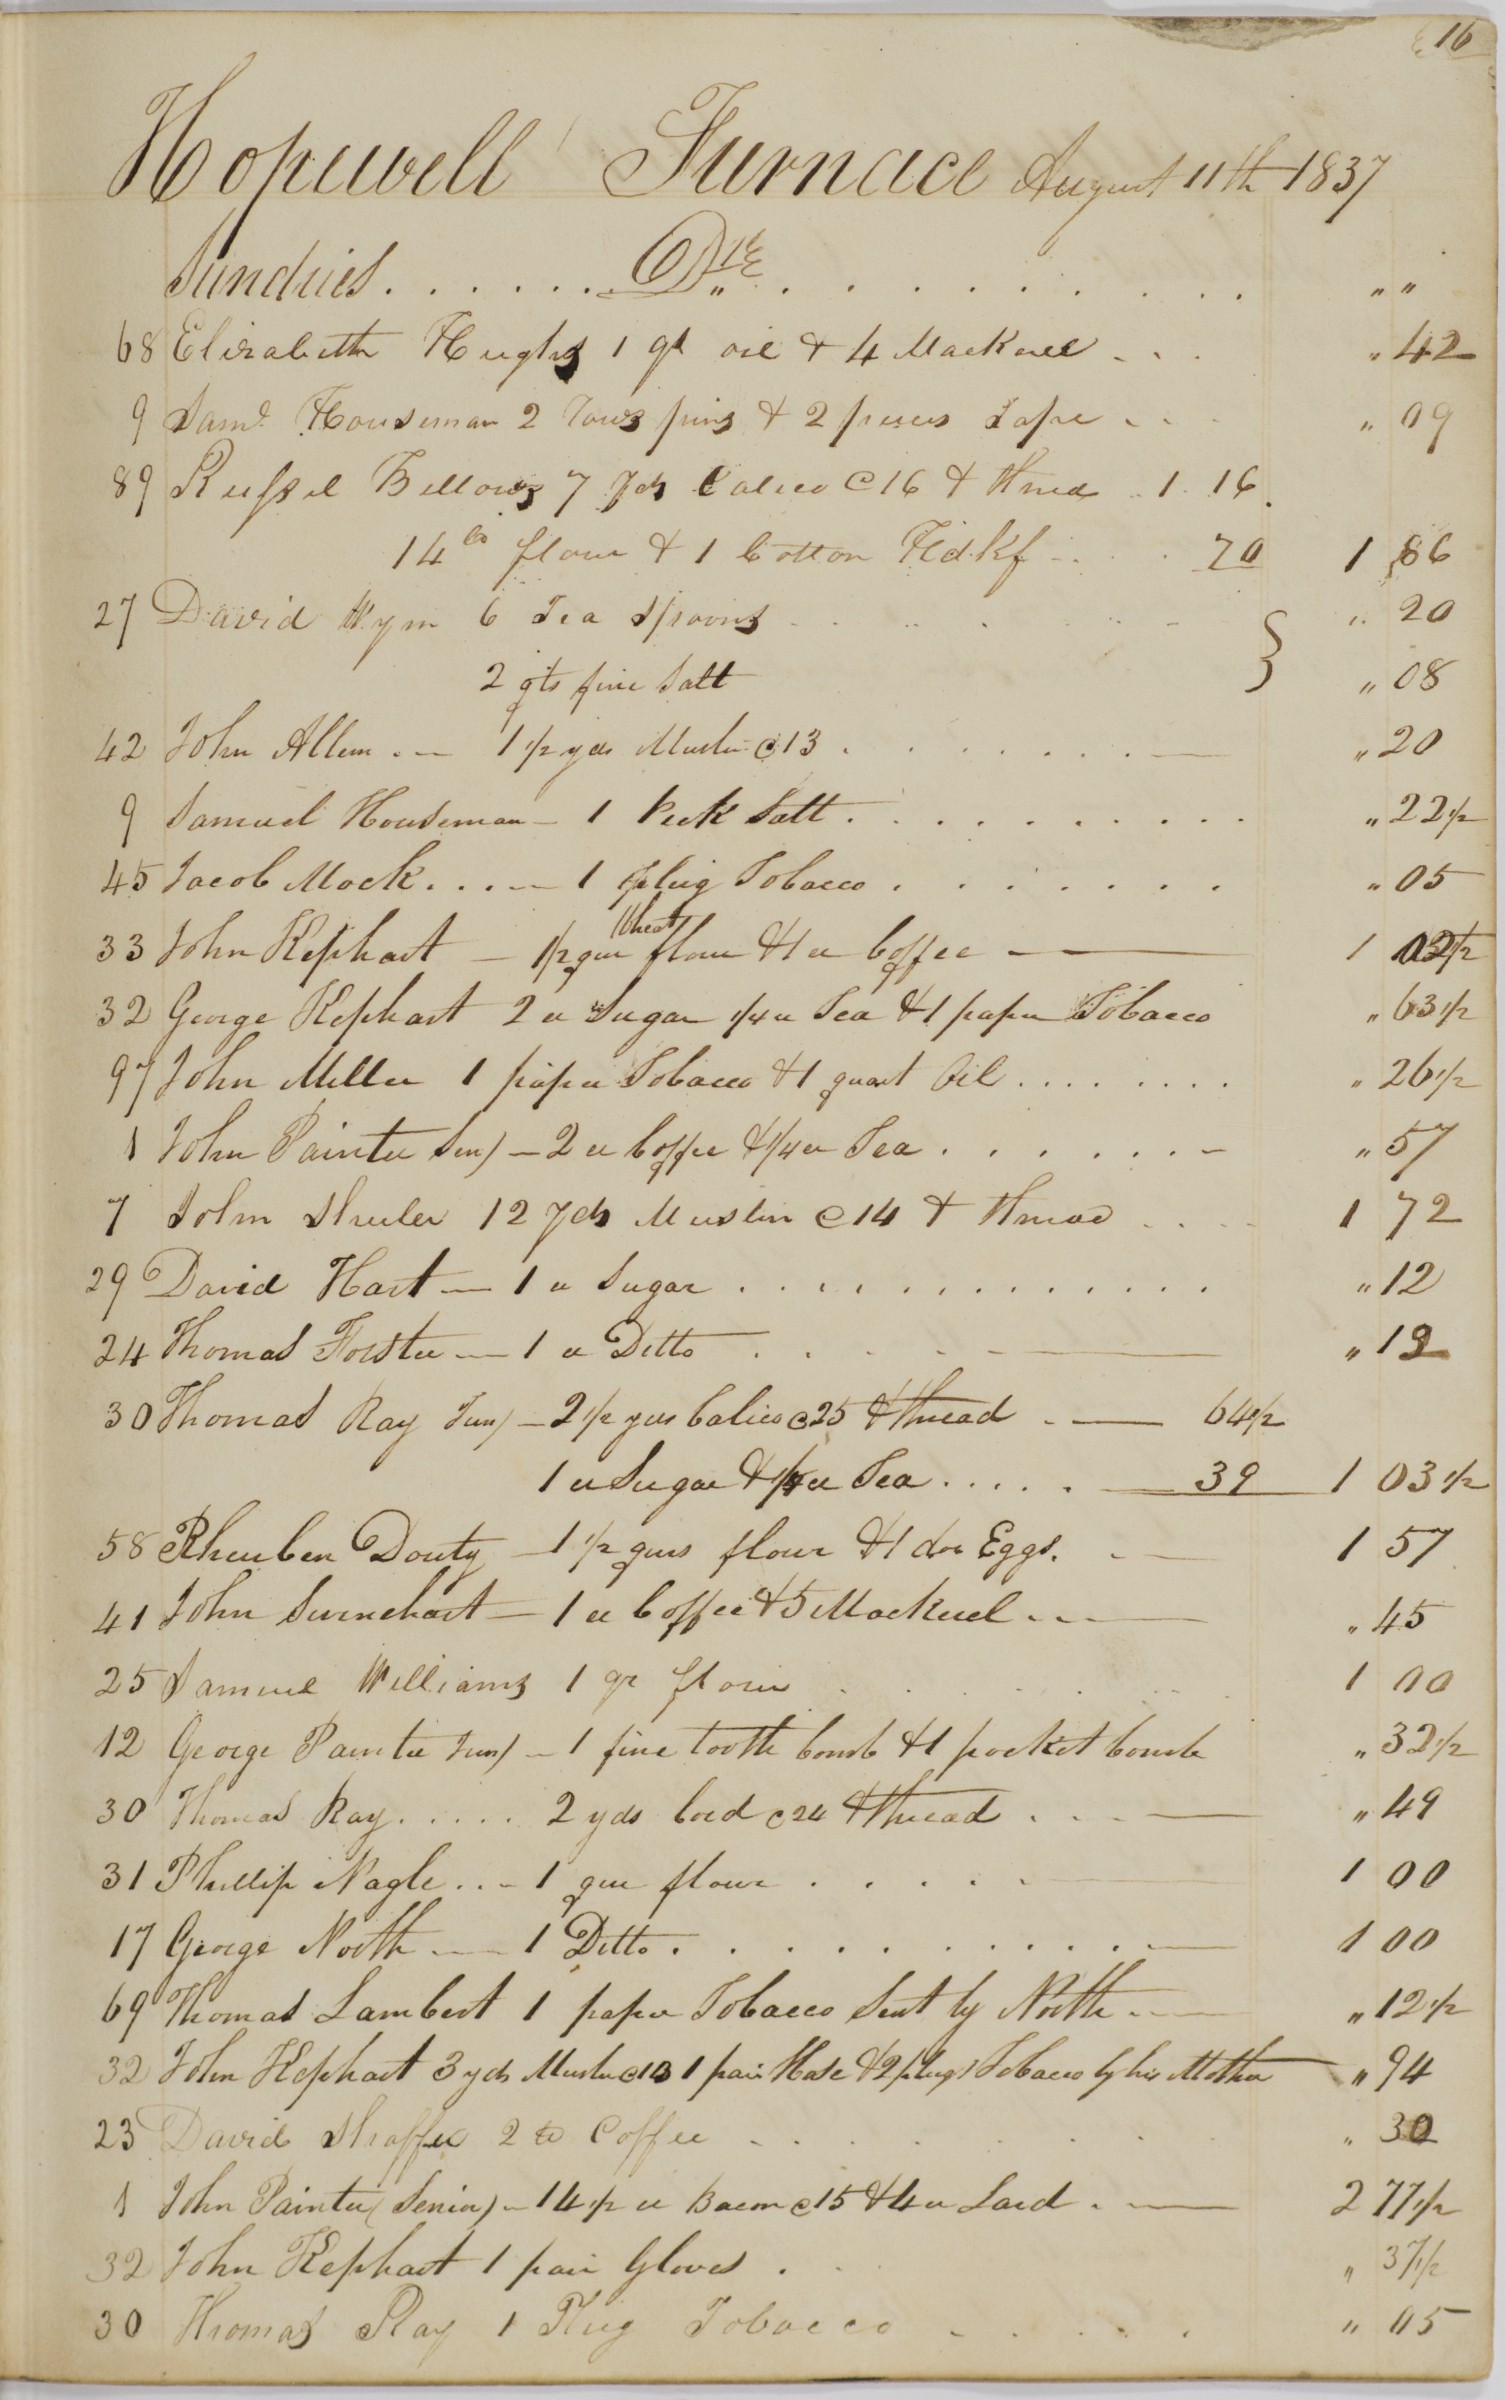 16
Hopewell Furnace August 11th 1837
Sundries . . . . . . Drs . . . . . . . . . . " "
68 Elizabeth Hughs 1 qt oil & 4 Mackrel - . . " 42
9 Saml Houseman 2 rows pins & 2 pieces Tape - . . " 09
89 Russel Bellows 7 Yds Calico @ 16 & thread .. 1 16
14 lb flour & 1 Cotton Hdkf - . . . 70 1 86
27 David Wynn 6 Tea Spoons } " 20
2 qts fine Salt " 08
42 John Allen . — 1 1/2 yds Muslin @ 13 . . . . . . . — " 20
9 Samuel Houseman — 1 Peck Salt . . . . . . . . . . " 22 1/2
45 Jacob Mock . . . — 1 plug Tobacco . . . . . . . " 05
Wheat
33 John Kephart — 1/2 qur flour & 1 lb Coffee — 1 02 1/2
32 George Kephart 2 lb Sugar 1/4 lb Tea & 1 paper Tobacco " 63 1/2
97 John Miller 1 paper Tobacco & 1 quart Oil . . . . . . . . " 26 1/2
1 John Painter Sen) — 2 lb Coffee & 1/4 lb Tea . . . . . . — " 57
7 John Sheeler 12 Yds Muslin @ 14 & thread . . . . 1 72
29 David Hart — 1 lb Sugar . . . . . . . . . . . . . " 12
24 Thomas Forster — 1 lb Ditto . . . . - — " 12
30 Thomas Ray Jun) — 2 1/2 yds Calico @ 25 & thread . — 64 1/2
1 lb Sugar & 1/4 lb Tea . . . . . — 39 1 03 1/2
58 Rheuben Douty — 1 1/2 qurs flour & 1 doz Eggs. — 1 57
41 John Surnehart — 1 lb Coffee & 5 Mackerel . . . — " 45
25 Samuel Williams 1 qr flour . . . . . . . 1 00
12 George Painter Jun) — 1 fine tooth Comb & 1 pocket Comb " 32 1/2
30 Thomas Ray . . . . . 2 yds Cord @ 24 & thread . . . — " 49
31 Phillip Nagle . . — 1 qur flour . . . . . — 1 00
17 George North — 1 Ditto . . . . . . . . . . — 1 00
69 Thomas Lambert 1 paper Tobacco Sent by North . — " 12 1/2
32 John Kephart 3 yds Muslin @ 13 1 pair Hose & 2 plugs Tobacco by his Mother — " 94
23 David Shaffer 2 lb Coffee - . . . . . . " 30
1 John Painter (Senior) — 14 1/2 lb Bacon @ 15 & 4 lb Lard . — 2 77 1/2
32 John Kephart 1 pair Gloves . . " 37 1/2
30 Thomas Ray 1 Plug Tobacco - . . . . " 05